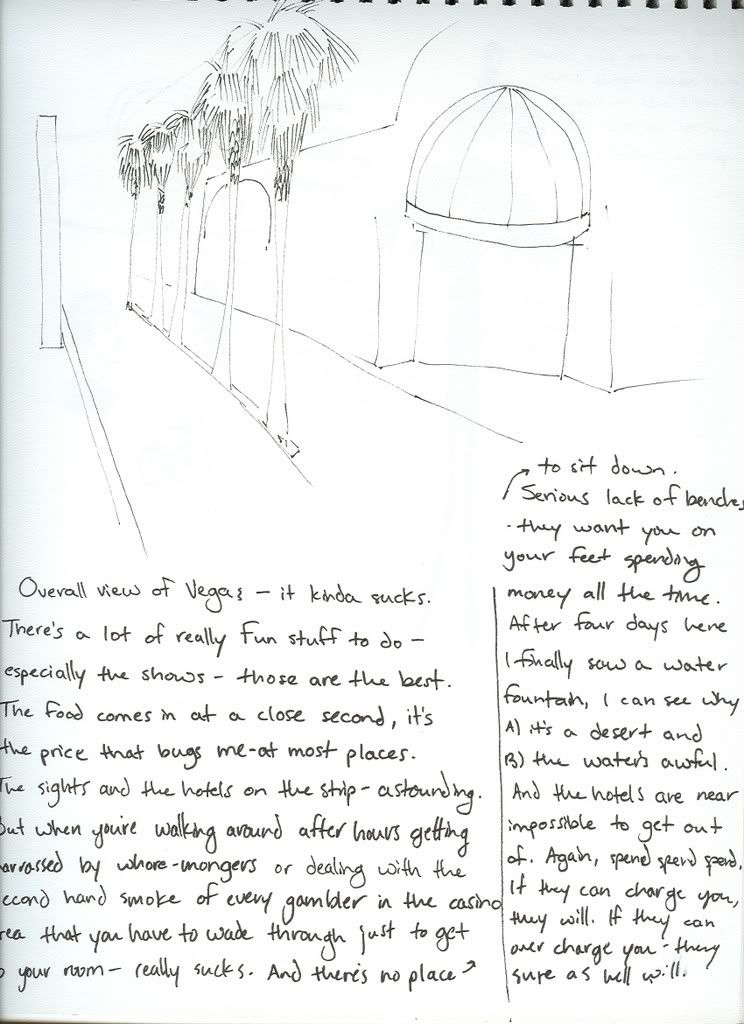 Overall view of Vegas – it kinda sucks.
There's a lot of really fun stuff to do –
especially the shows – those are the best.
The food comes in at a close second, it's
the price that bugs me-at most places.
The sights and the hotels on the strip – astounding.
But when you're walking around after hours getting
harrassed by whore-mongers or dealing with the
second hand smoke of every gambler in the casino
area that you have to wade through just to get
to your room – really sucks. And there's no place
to sit down.
Serious lack of benches
- they want you on
your feet spending
money all the time.
After four days here
I finally saw a water
fountain, I can see why
A) it's a desert and
B) the water's awful.
And the hotels are near
impossible to get out
of. Again, spend spend spend.
If they can charge you,
they will. If they can
over charge you – they
sure as hell will.